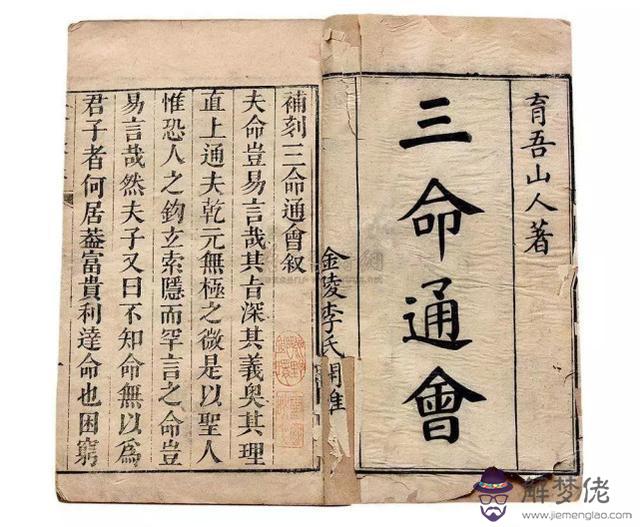 育吾山人著
三命通會
金陵李氏
補刻三命通會叙
夫命豈易言哉其旨深其義奧其理
直上通夫乾元無極之微是以聖人
惟恐人之鈎立索隱而罕言之命豈
易言哉然夫子又曰不知命無以爲
君子者何居葢富貴利達命也困窮
解梦佬
www.jiemenglao.com